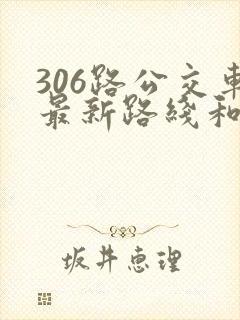 306路公交車
最新路綫和
坂井惠理